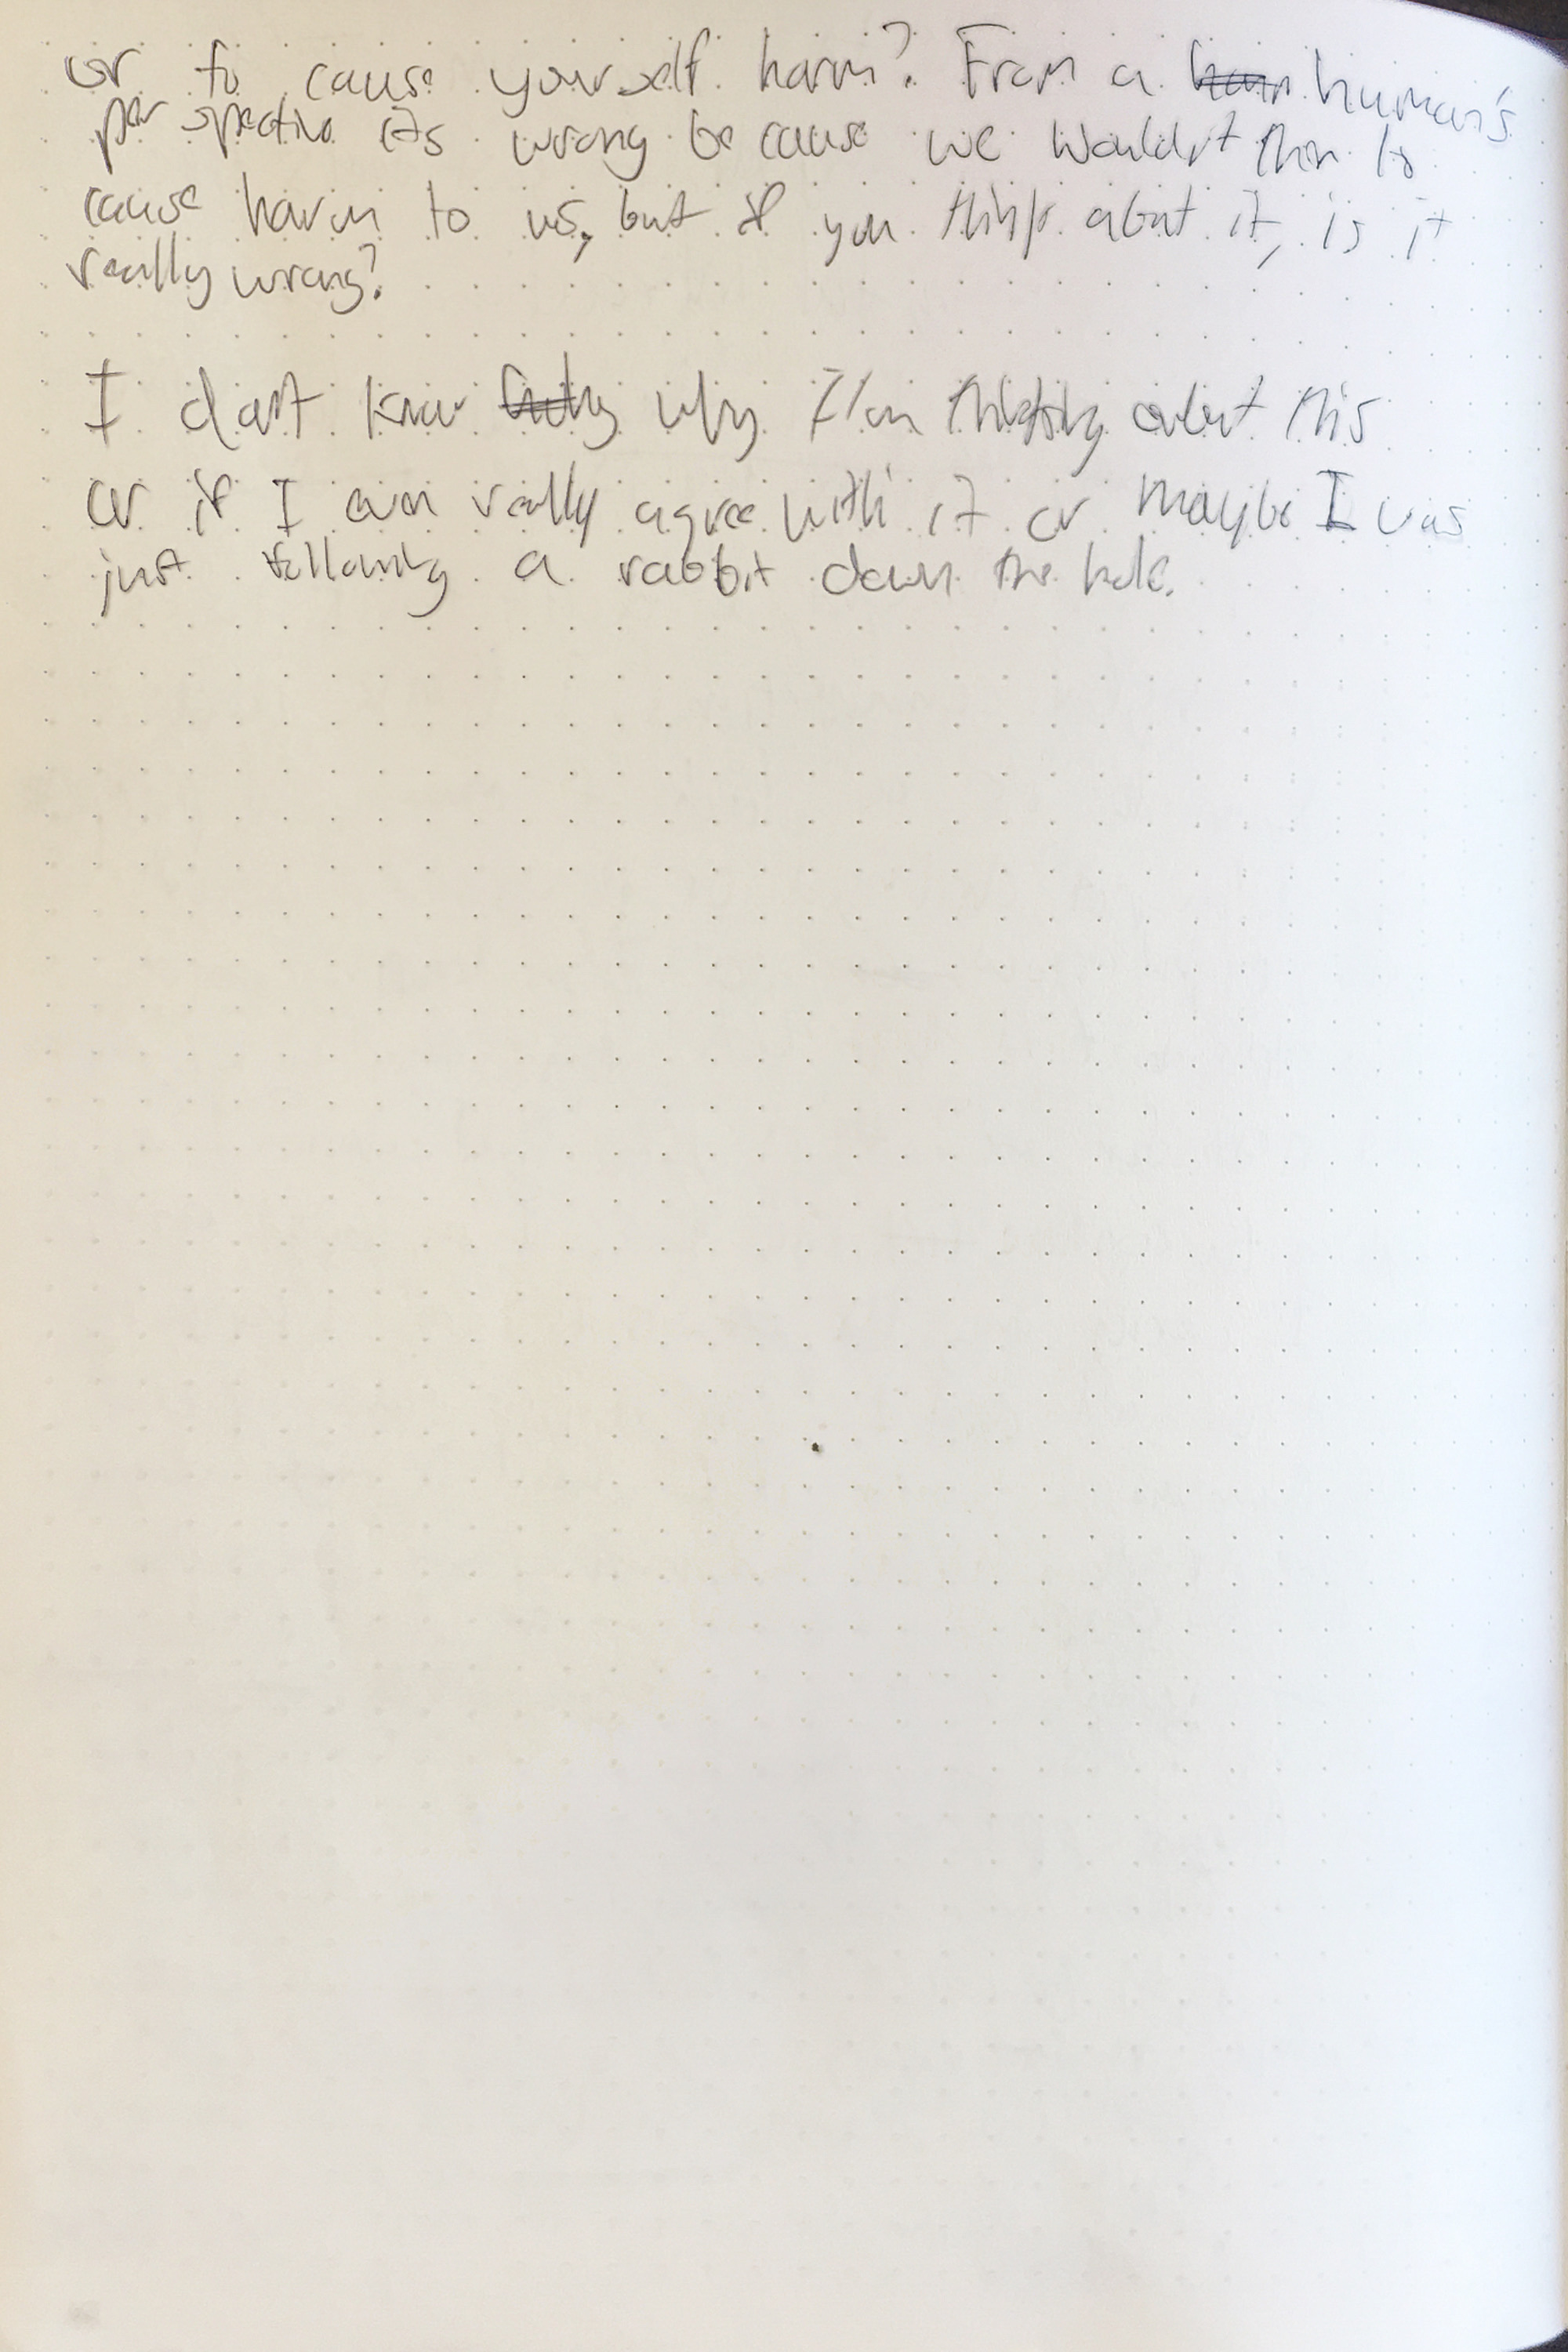 or to cause yourself harm? From a human's
perspective its wrong because we wouldn't them to
cause harm to us, but if you think about it, is it
really wrong?
I don't know why I'm thinking about this
or if I even really agree with it or maybe I was
just following a rabbit down the hole.